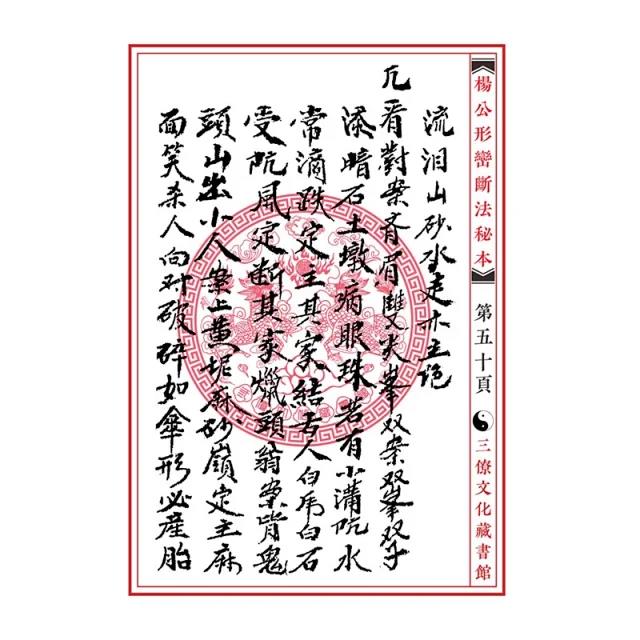 楊公形巒斷法秘本
第五十頁
三僚文化藏書館
流泪山砂水走亦主絕
凡看對案齊眉雙尖峯双案双峯双子
添暗石土墩病眼珠若有小溝阬水
常滴跌定主其家結舌人白虎白石
受阬風定斷其家爛頭翁案背鬼
頭山出小人案上黃坭麻砂嶺定主麻
面笑杀人向对破碎如傘形必產胎